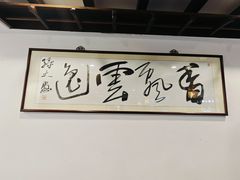 香飄雲逸